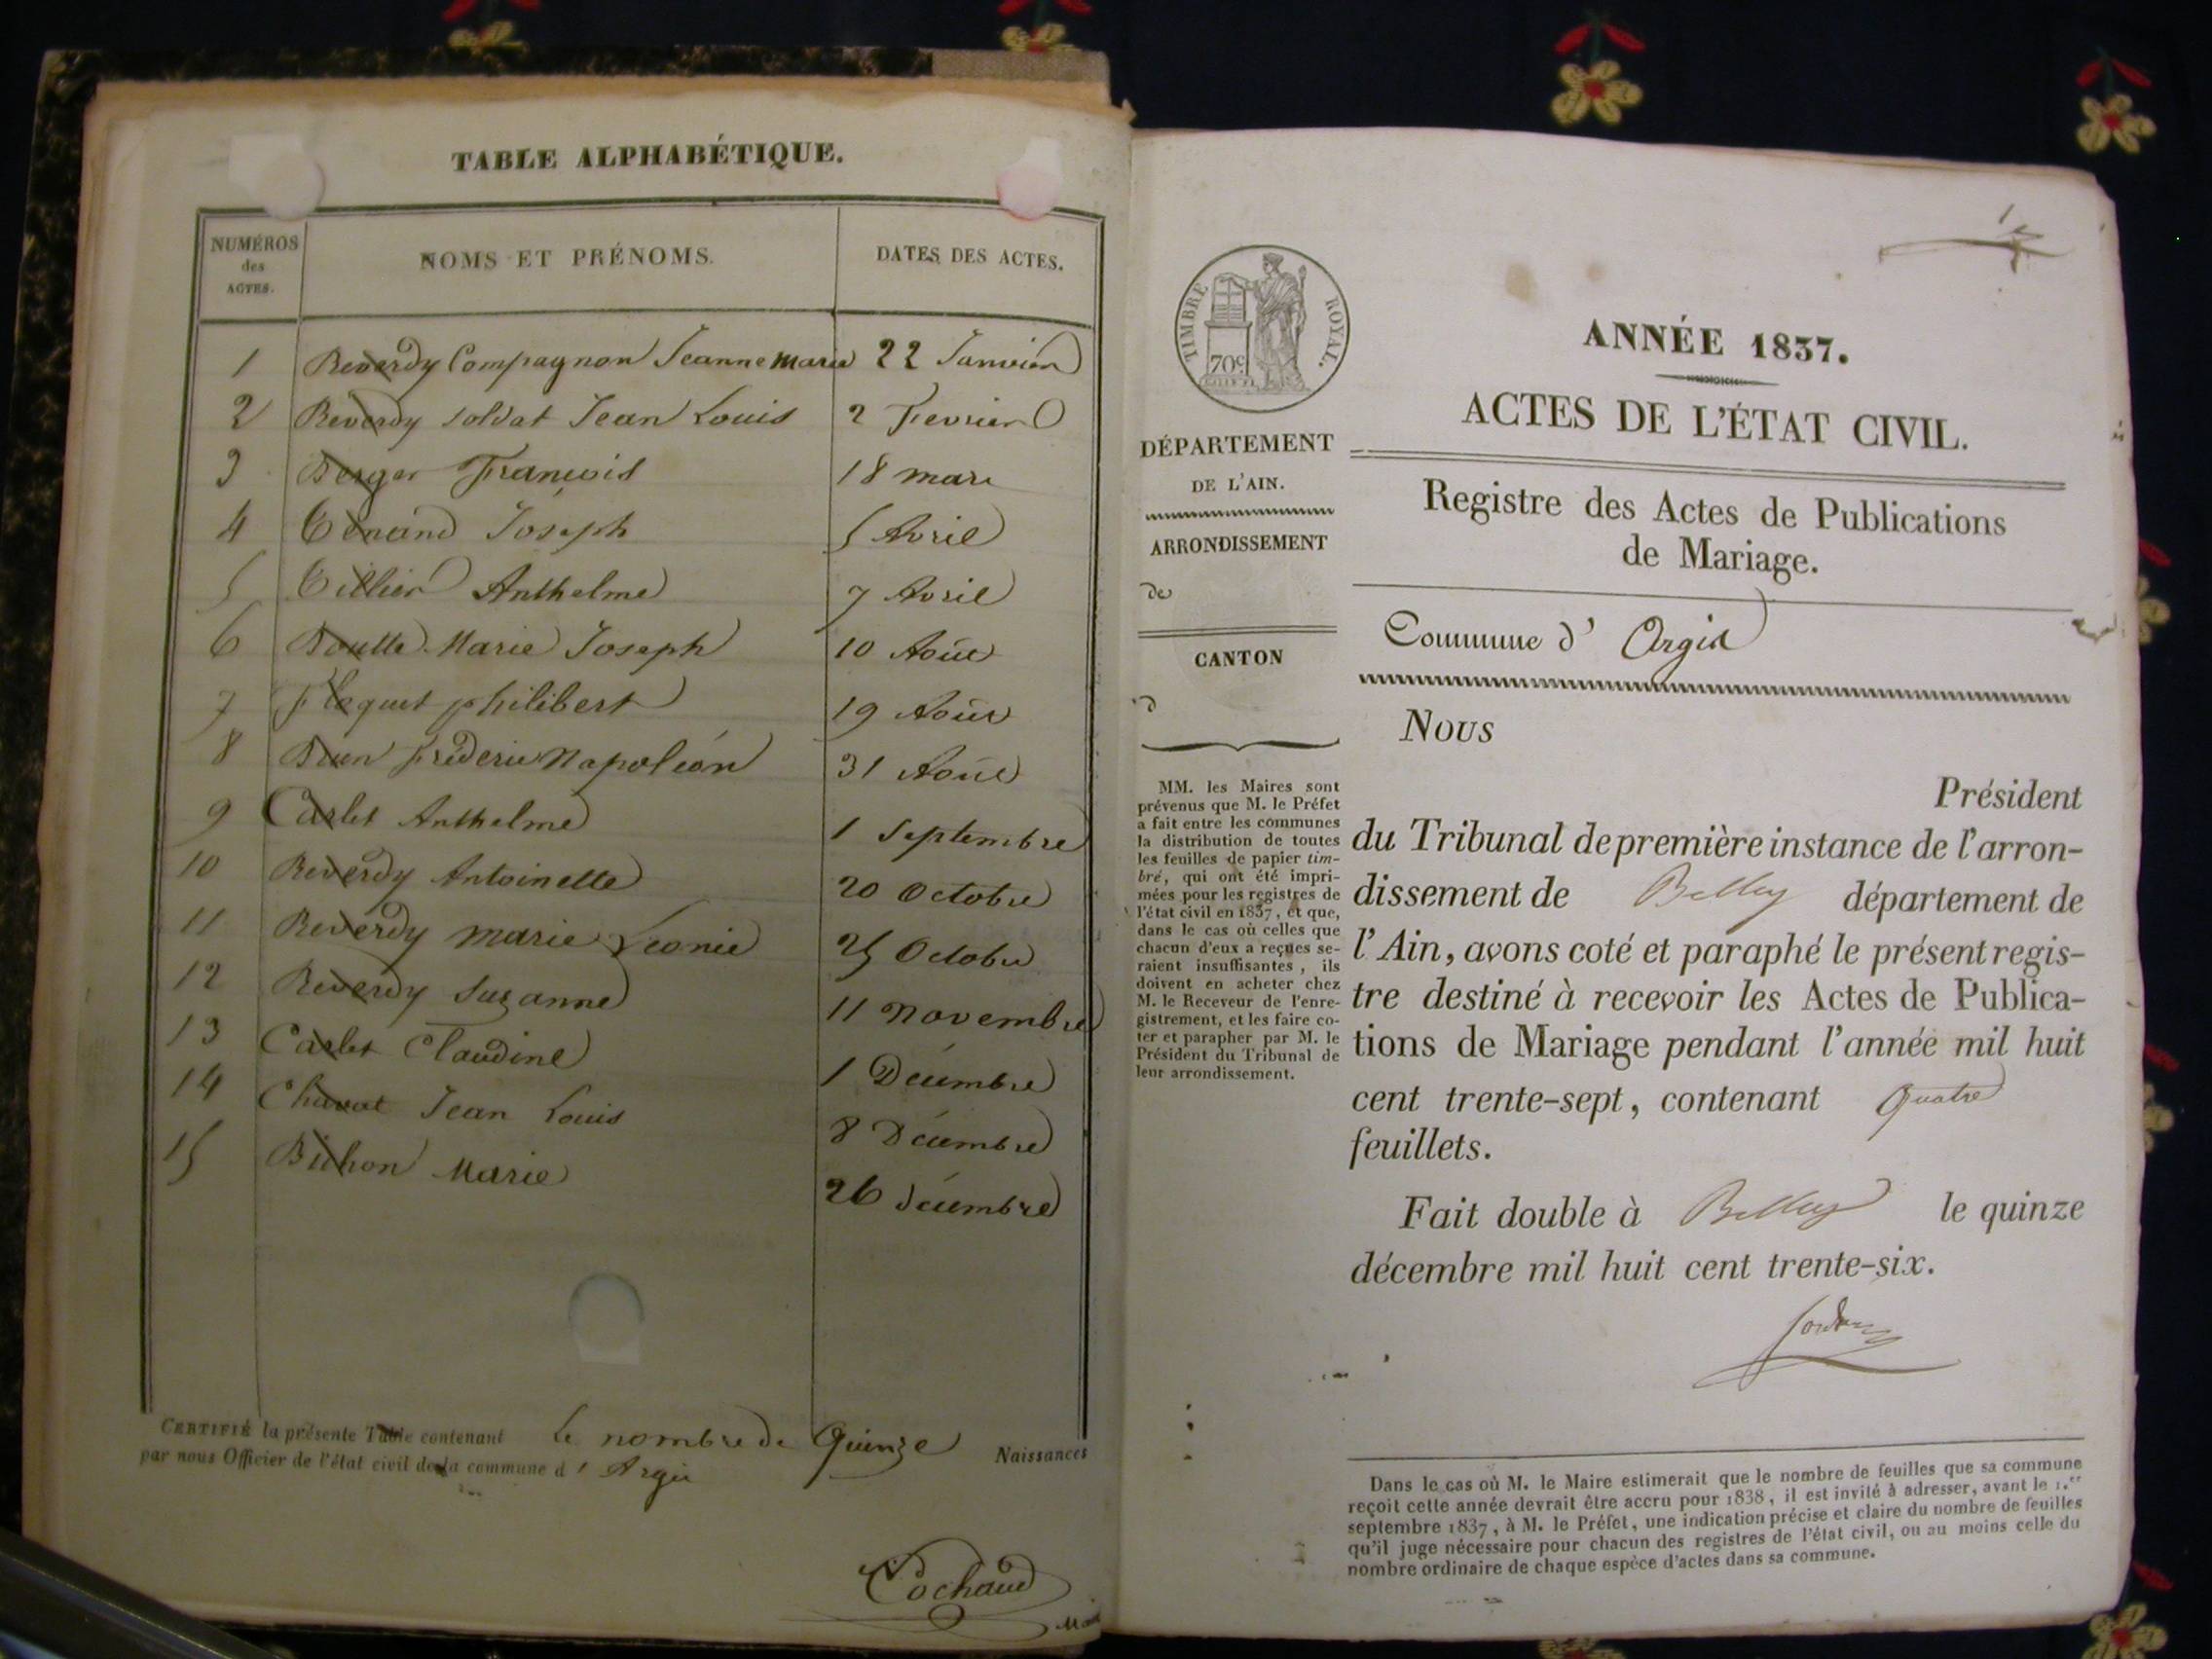 TABLE ALPHABÉTIQUE.
NUMÉROS
des
ACTES.
NOMS ET PRÉNOMS.
DATES DES ACTES.
1 Reverdy Compagnon Jeanne marie 22 Janvier
2 Reverdy soldat Jean Louis 2 Fevrier
3 Berger François 18 mars
4 Tenand Joseph 5 Avril
5 Tillier Anthelme 7 Avril
6 Boutte Marie Joseph 10 Août
7 Floquet philibert 19 Août
8 Brun fréderic Napoléon 31 Août
9 Carlet Anthelme 1 Septembre
10 Reverdy Antoinette 20 Octobre
11 Reverdy marie Leonie 25 Octobre
12 Reverdy Suzanne 11 novembre
13 Carlet Claudine 1 Décembre
14 Chavat Jean Louis 8 Décembre
15 Bichon Marie 26 décembre
CERTIFIÉ la présente Table contenant le nombre de Quinze Naissances
par nous Officier de l'état civil de la commune d' Argis
Cochaud
TIMBRE ROYAL.
70c
ANNÉE 1837.
ACTES DE L'ÉTAT CIVIL.
DÉPARTEMENT
DE L'AIN.
ARRONDISSEMENT
de
CANTON
d
Registre des Actes de Publications
de Mariage.
Commune d' Argis
MM. les Maires sont
prévenus que M. le Préfet
a fait entre les communes
la distribution de toutes
les feuilles de papier tim-
bré, qui ont été impri-
mées pour les registres de
l'état civil en 1837, et que,
dans le cas où celles que
chacun d'eux a reçues se-
raient insuffisantes, ils
doivent en acheter chez
M. le Receveur de l'enre-
gistrement, et les faire co-
ter et parapher par M. le
Président du Tribunal de
leur arrondissement.
Nous
Président
du Tribunal de première instance de l'arron-
dissement de Belley département de
l'Ain, avons coté et paraphé le présent regis-
tre destiné à recevoir les Actes de Publica-
tions de Mariage pendant l'année mil huit
cent trente-sept, contenant quatre
feuillets.
Fait double à Belley le quinze
décembre mil huit cent trente-six.
Dans le cas où M. le Maire estimerait que le nombre de feuilles que sa commune
reçoit cette année devrait être accru pour 1838, il est invité à adresser, avant le 1.er
septembre 1837, à M. le Préfet, une indication précise et claire du nombre de feuilles
qu'il juge nécessaire pour chacun des registres de l'état civil, ou au moins celle du
nombre ordinaire de chaque espèce d'actes dans sa commune.